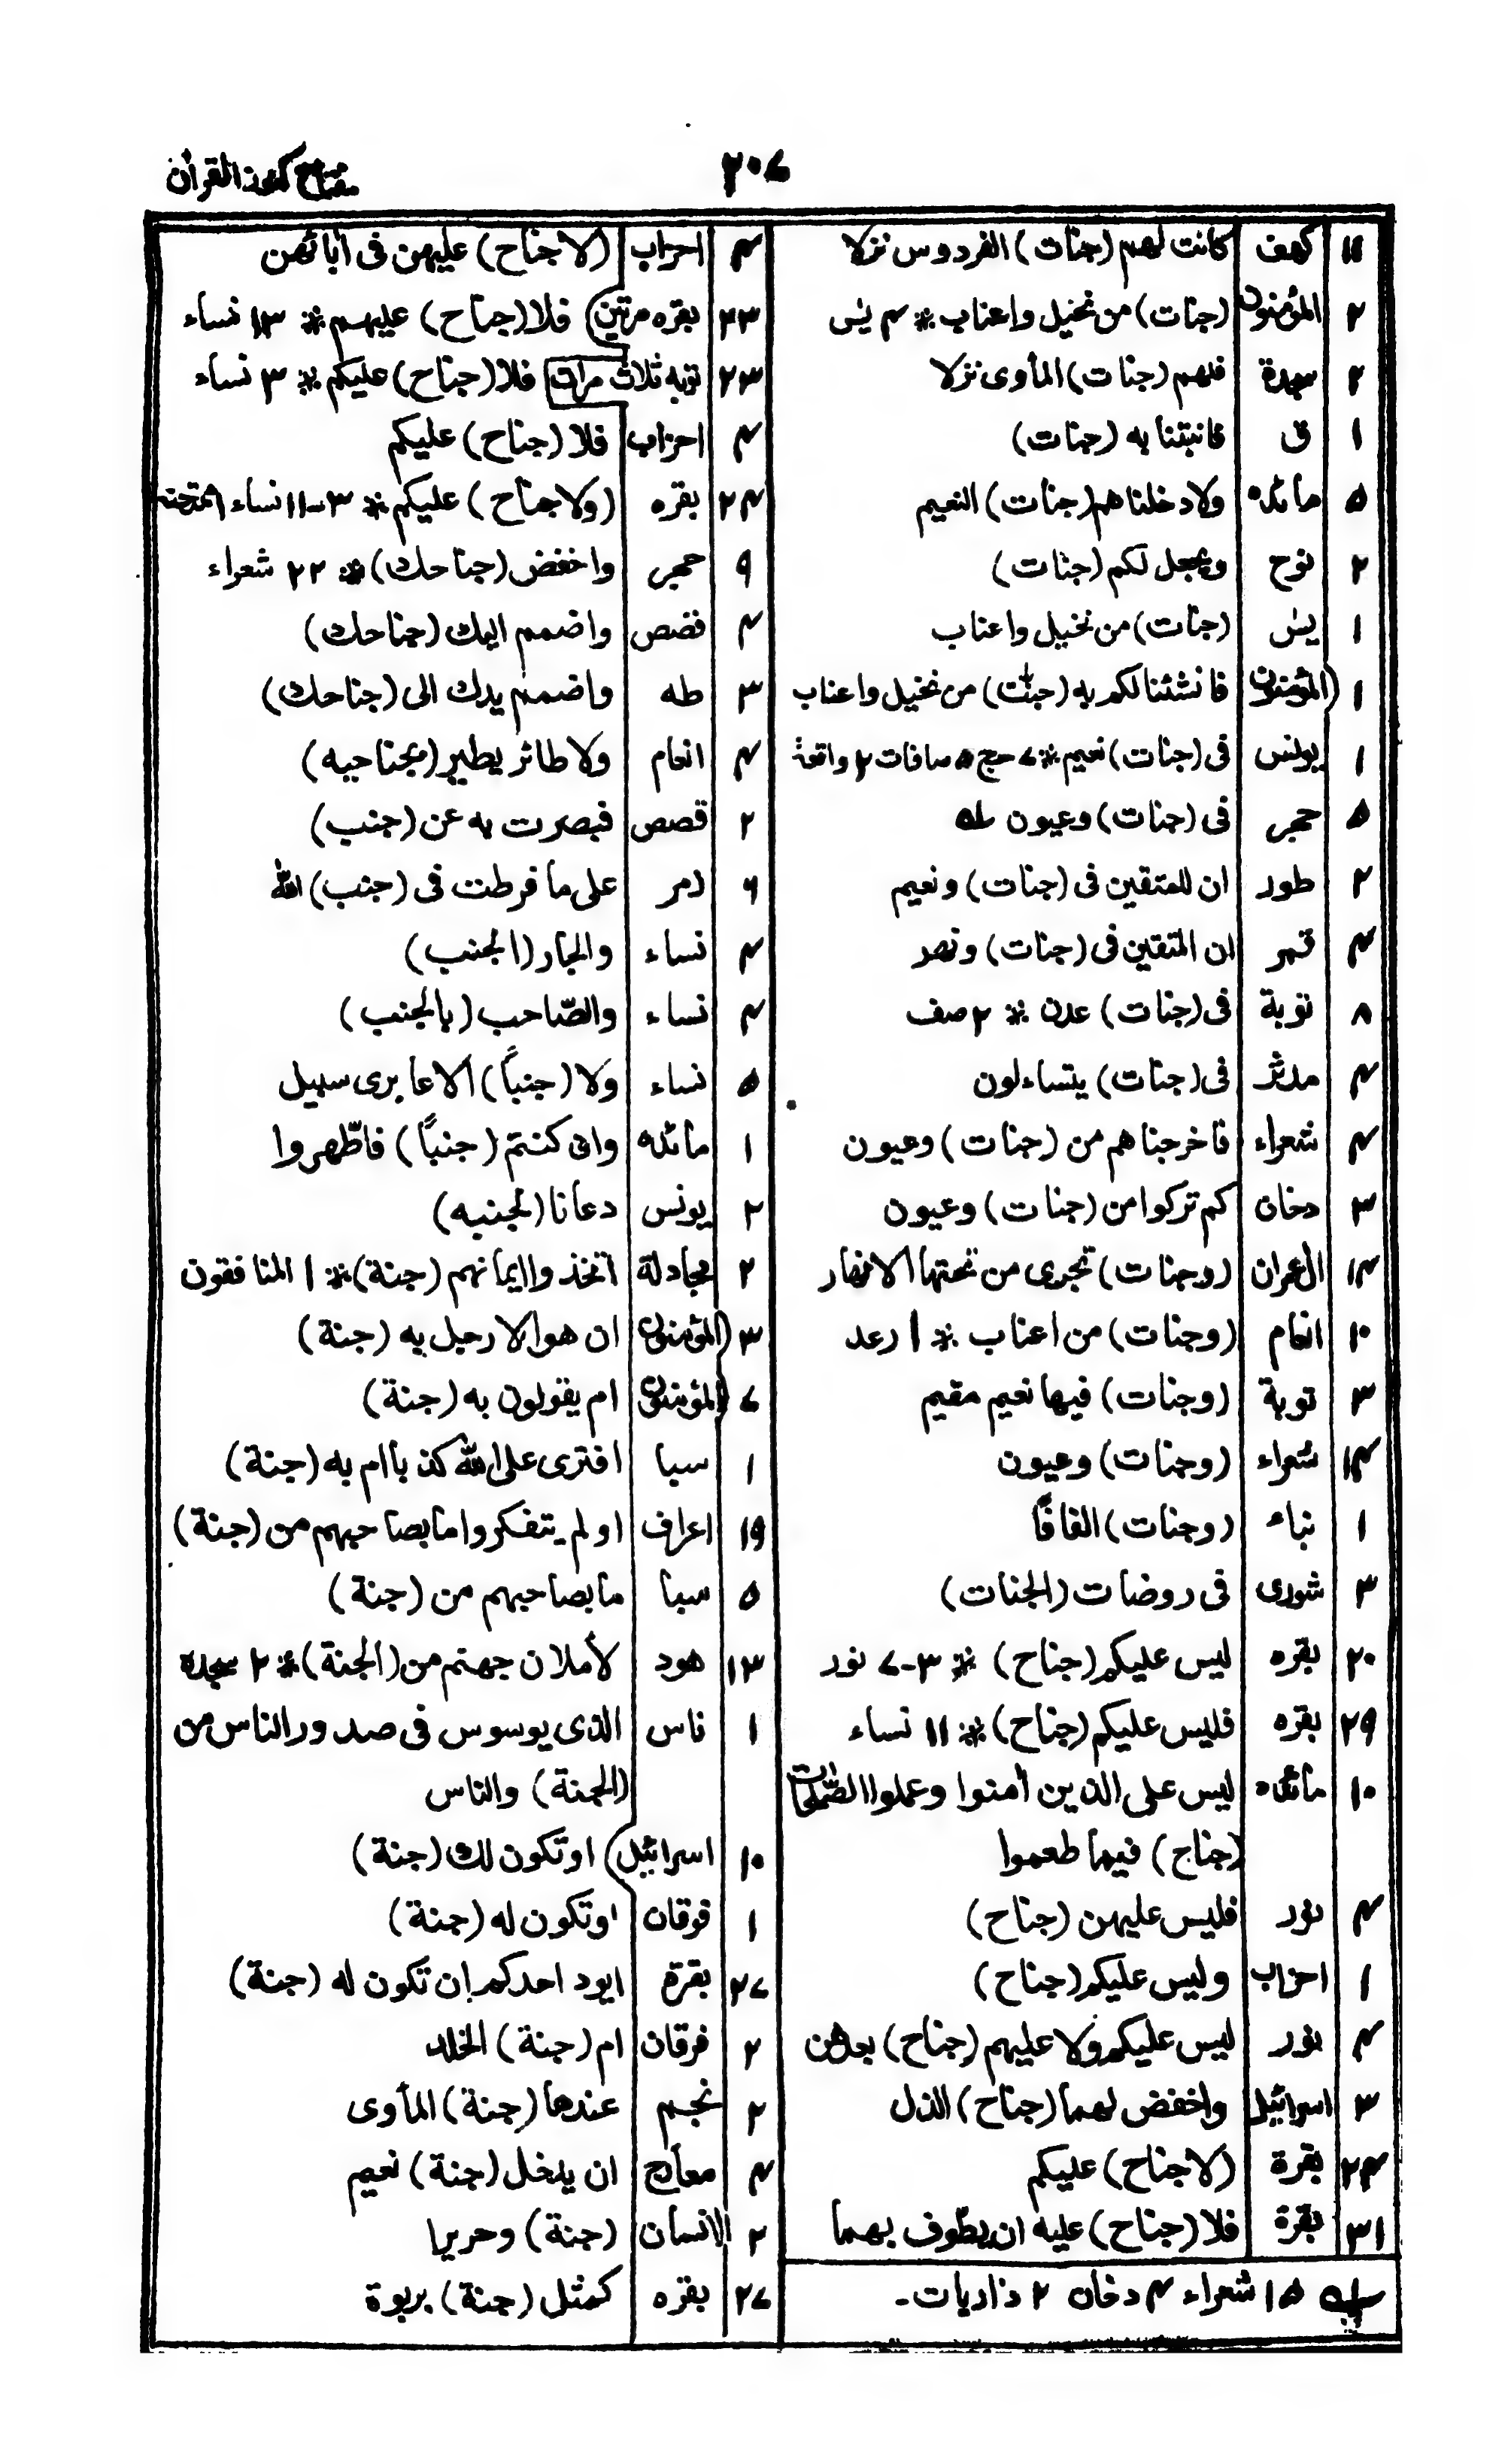 ۲۰۷
مفتاح كنوز القرآن
۱۱ كهف كانت لهم (جنات) الفردوس نزلا
۲ المؤمنون (جنات) من نخيل واعناب * ۳ يٰس
۲ سجدة فلهم (جنات) المأوى نزلا
۱ ق فانبتنا به (جنات)
۵ مائده ولادخلناهم (جنات) النعيم
۲ نوح ويجعل لكم (جنات)
۱ يٰس (جنات) من نخيل واعناب
۱ المؤمنون فانشئنا لكم به (جنّٰت) من نخيل واعناب
۱ يونس فى (جنات) نعيم * ۷ حج ۵ صافات ۲ واقعة
۵ حجر فى (جنات) وعيون
۲ طور ان للمتقين فى (جنات) ونعيم
۴ قمر ان المتقين فى (جنات) ونهر
۸ توبة فى (جنات) عدن * ۲ صف
۴ مدثر فى (جنات) يتساءلون
۴ شعراء فاخرجناهم من (جنات) وعيون
۳ دخان كم تركوا من (جنات) وعيون
۱۴ ال عمران (وجنات) تجرى من تحتها الانهار
۱۰ انعام (وجنات) من اعناب * ۱ رعد
۳ توبة (وجنات) فيها نعيم مقيم
۱۴ شعراء (وجنات) وعيون
۱ نباء (وجنات) الفافًا
۳ شورى فى روضات (الجنات)
۲۰ بقره ليس عليكم (جناح) * ۳-۷ نور
۲۹ بقره فليس عليكم (جناح) * ۱۱ نساء
۱۰ مائده ليس على الذين اٰمنوا وعملوا الصّٰلحٰت
(جناح) فيما طعموا
۴ نور فليس عليهن (جناح)
۱ احزاب وليس عليكم (جناح)
۴ نور ليس عليكم ولا عليهم (جناح) بعدهن
۳ اسرائيل واخفض لهما (جناح) الذل
۲۴ بقرة (لا جناح) عليكم
۳۱ بقرة فلا (جناح) عليه ان يطّوف بهما
۱۵ شعراء ۴ دخان ۲ ذاريات ـ
۴ احزاب (لا جناح) عليهن فى اٰبائهن
۲۳ بقره مرتين) فلا (جناح) عليهم * ۱۳ نساء
۲۳ توبه ثلاث مرات فلا (جناح) عليكم * ۳ نساء
۴ احزاب فلا (جناح) عليكم
۲۴ بقره (ولا جناح) عليكم * ۳-۱۱ نساء ممتحنه
۹ حجر واخفض (جناحك) * ۲۲ شعراء
۴ قصص واضمم اليك (جناحك)
۳ طه واضمم يدك الى (جناحك)
۴ انعام ولا طائر يطير (بجناحيه)
۲ قصص فبصرت به عن (جنب)
۶ زمر على ما فرطت فى (جنب) الله
۴ نساء والجار (الجنب)
۴ نساء والصّاحب (بالجنب)
۵ نساء ولا (جنباً) الا عابرى سبيل
۱ مائده وان كنتم (جنباً) فاطّهروا
۲ يونس دعانا (لجنبه)
۲ مجادلة اتخذوا ايمانهم (جنة) * ۱ المنافقون
۳ المؤمنون ان هو الا رجل به (جنة)
۷ المؤمنون ام يقولون به (جنة)
۱ سبا افترى على الله كذبا ام به (جنة)
۱۹ اعراف اولم يتفكروا ما بصاحبهم من (جنة)
۵ سبا ما بصاحبهم من (جنة)
۱۳ هود لأملان جهنم من (الجنة) * ۲ سجده
۱ ناس الذى يوسوس فى صدور الناس من
(الجنة) والناس
۱۰ اسرائيل) او تكون لك (جنة)
۱ فرقان او تكون له (جنة)
۲۷ بقرة ايود احدكم ان تكون له (جنة)
۲ فرقان ام (جنة) الخلد
۲ نجم عندها (جنة) المأوى
۴ معارج ان يدخل (جنة) نعيم
۲ الانسان (جنة) وحريرا
۲۷ بقره كمثل (جنة) بربوة